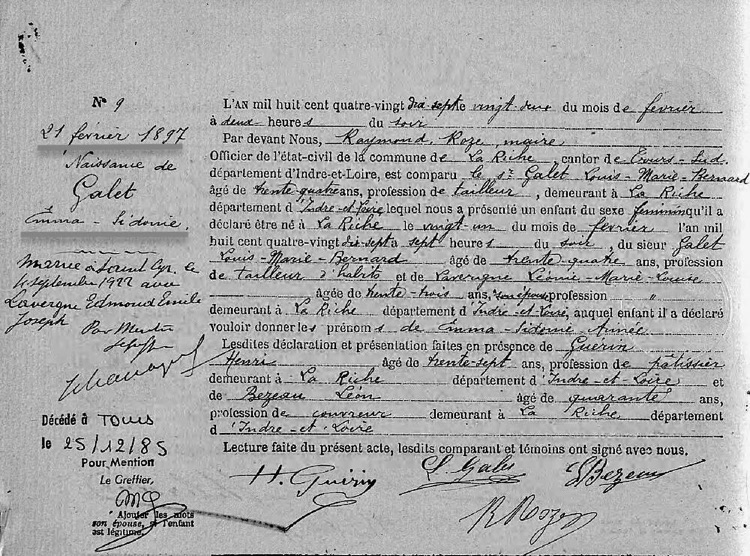 N° 9
21 février 1897
Naissance de
Galet
Emma - Sidonie.
Mariée à Saint Cyr, le
4 septembre 1922 avec
Lavergne Edmond Emile
Joseph
Pour Mention
Décédé à TOURS
le 25/12/85
Pour Mention
Le Greffier,
Ajouter les mots
son épouse, et l'enfant
est légitime.
L'AN mil huit cent quatre-vingt dix-sept le vingt-deux du mois de février
à deux heures du soir
Par devant Nous, Raymond Roze, maire
Officier de l'état-civil de la commune de La Riche canton de Tours-Sud,
département d'Indre-et-Loire, est comparu le sr Galet Louis-Marie-Bernard
âgé de trente-quatre ans, profession de tailleur, demeurant à La Riche
département d'Indre-et-Loire lequel nous a présenté un enfant du sexe féminin qu'il a
déclaré être né à La Riche le vingt-un du mois de février l'an mil
huit cent quatre-vingt dix-sept à sept heures du soir, du sieur Galet
Louis-Marie-Bernard âgé de trente-quatre ans, profession
de tailleur d'habits et de Lavergne Léonie-Marie-Louise
âgée de trente-trois ans, son épouse profession "
demeurant à La Riche département d'Indre-et-Loire, auquel enfant il a déclaré
vouloir donner les prénoms de Emma-Sidonie-Aimée
Lesdites déclaration et présentation faites en présence de Guérin
Henri âgé de trente-sept ans, profession de pâtissier
demeurant à La Riche département d'Indre-et-Loire et
de Bezeau Léon âgé de quarante ans,
profession de couvreur demeurant à La Riche département
d'Indre-et-Loire
Lecture faite du présent acte, lesdits comparant et témoins ont signé avec nous.
H. Guérin L. Galet L Bezeau
R Roze